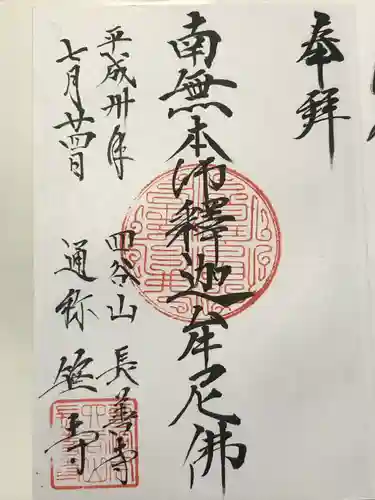 奉拝
南無本師釋迦牟尼佛
平成卅年
七月廿四日
四谷山 長善寺
通称 笹寺